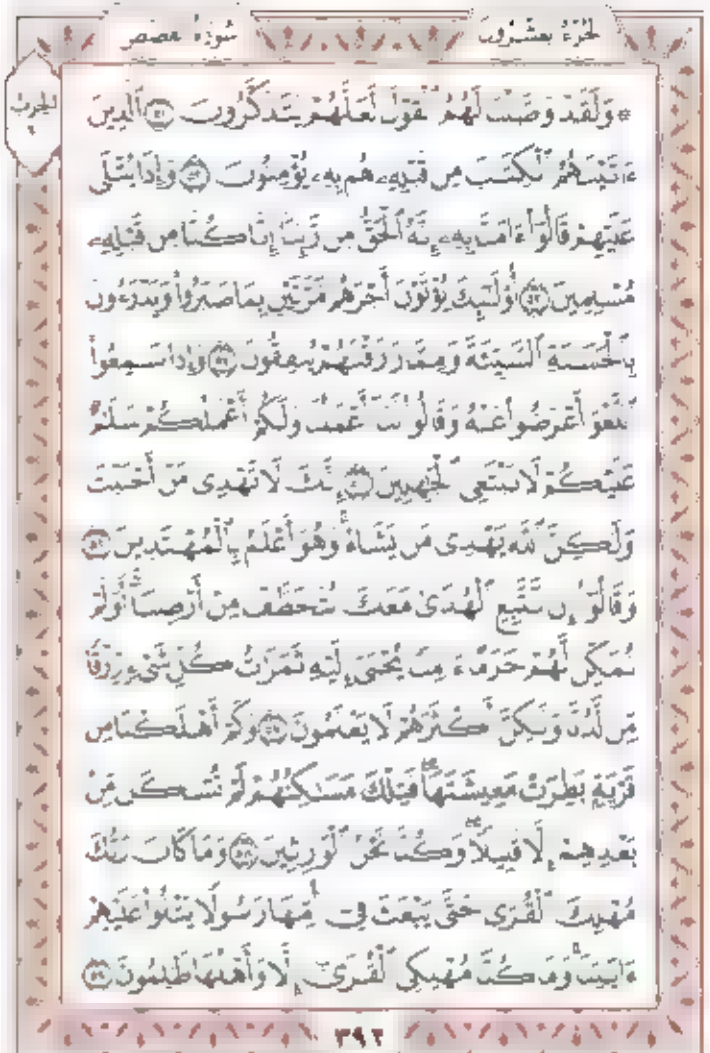 الجزء العشرون سورة القصص
الحزب
* وَلَقَدْ وَصَّلْنَا لَهُمُ ٱلْقَوْلَ لَعَلَّهُمْ يَتَذَكَّرُونَ ۝٥١ ٱلَّذِينَ
ءَاتَيْنَٰهُمُ ٱلْكِتَٰبَ مِن قَبْلِهِۦ هُم بِهِۦ يُؤْمِنُونَ ۝٥٢ وَإِذَا يُتْلَىٰ
عَلَيْهِمْ قَالُوٓا۟ ءَامَنَّا بِهِۦٓ إِنَّهُ ٱلْحَقُّ مِن رَّبِّنَآ إِنَّا كُنَّا مِن قَبْلِهِۦ
مُسْلِمِينَ ۝٥٣ أُو۟لَٰٓئِكَ يُؤْتَوْنَ أَجْرَهُم مَّرَّتَيْنِ بِمَا صَبَرُوا۟ وَيَدْرَءُونَ
بِٱلْحَسَنَةِ ٱلسَّيِّئَةَ وَمِمَّا رَزَقْنَٰهُمْ يُنفِقُونَ ۝٥٤ وَإِذَا سَمِعُوا۟
ٱللَّغْوَ أَعْرَضُوا۟ عَنْهُ وَقَالُوا۟ لَنَآ أَعْمَٰلُنَا وَلَكُمْ أَعْمَٰلُكُمْ سَلَٰمٌ
عَلَيْكُمْ لَا نَبْتَغِى ٱلْجَٰهِلِينَ ۝٥٥ إِنَّكَ لَا تَهْدِى مَنْ أَحْبَبْتَ
وَلَٰكِنَّ ٱللَّهَ يَهْدِى مَن يَشَآءُ ۚ وَهُوَ أَعْلَمُ بِٱلْمُهْتَدِينَ ۝٥٦
وَقَالُوٓا۟ إِن نَّتَّبِعِ ٱلْهُدَىٰ مَعَكَ نُتَخَطَّفْ مِنْ أَرْضِنَآ ۚ أَوَلَمْ
نُمَكِّن لَّهُمْ حَرَمًا ءَامِنًا يُجْبَىٰٓ إِلَيْهِ ثَمَرَٰتُ كُلِّ شَىْءٍ رِّزْقًا
مِّن لَّدُنَّا وَلَٰكِنَّ أَكْثَرَهُمْ لَا يَعْلَمُونَ ۝٥٧ وَكَمْ أَهْلَكْنَا مِن
قَرْيَةٍۭ بَطِرَتْ مَعِيشَتَهَا ۖ فَتِلْكَ مَسَٰكِنُهُمْ لَمْ تُسْكَن مِّنۢ
بَعْدِهِمْ إِلَّا قَلِيلًا ۖ وَكُنَّا نَحْنُ ٱلْوَٰرِثِينَ ۝٥٨ وَمَا كَانَ رَبُّكَ
مُهْلِكَ ٱلْقُرَىٰ حَتَّىٰ يَبْعَثَ فِىٓ أُمِّهَا رَسُولًا يَتْلُوا۟ عَلَيْهِمْ
ءَايَٰتِنَا ۚ وَمَا كُنَّا مُهْلِكِى ٱلْقُرَىٰٓ إِلَّا وَأَهْلُهَا ظَٰلِمُونَ ۝٥٩
٣٩٢